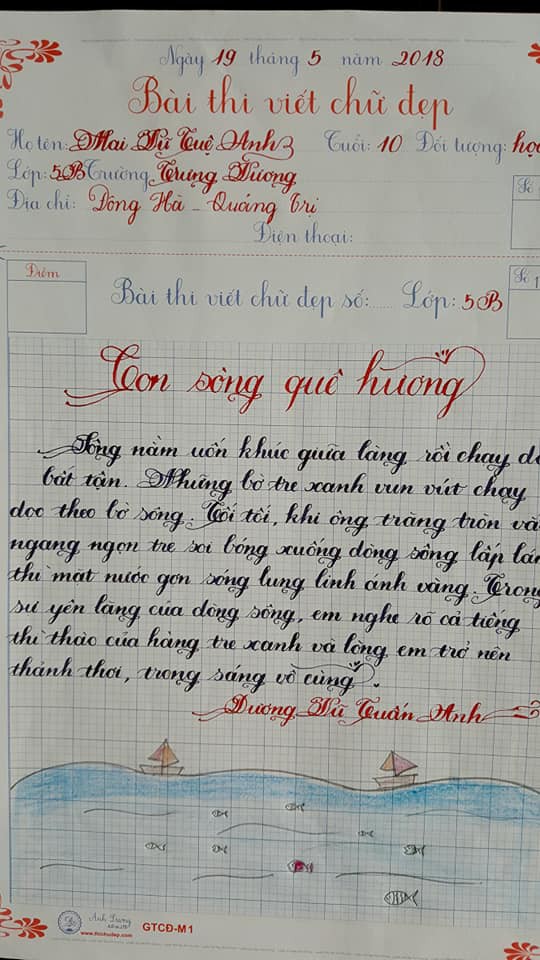 Ngày 19 tháng 5 năm 2018
Bài thi viết chữ đẹp
Họ tên: Mai Vũ Tuệ Anh Tuổi: 10 Đối tượng: học
Lớp: 5B Trường Trưng Vương
Địa chỉ: Đông Hà - Quảng Trị
Điện thoại:
Điểm
Bài thi viết chữ đẹp số:...... Lớp: 5B
Số
Con sông quê hương
Sông nằm uốn khúc giữa làng rồi chạy dà
bất tận. Những bờ tre xanh vun vút chạy
dọc theo bờ sông. Tối tối, khi ông trăng tròn vắ
ngang ngọn tre soi bóng xuống dòng sông lấp lán
thì mặt nước gợn sóng lung linh ánh vàng. Trong
sự yên lặng của dòng sông, em nghe rõ cả tiếng
thì thào của hàng tre xanh và lòng em trở nên
thảnh thơi, trong sáng vô cùng.
Dương Vũ Tuấn Anh
Ánh Dương
www.thichudep.com
GTCĐ-M1